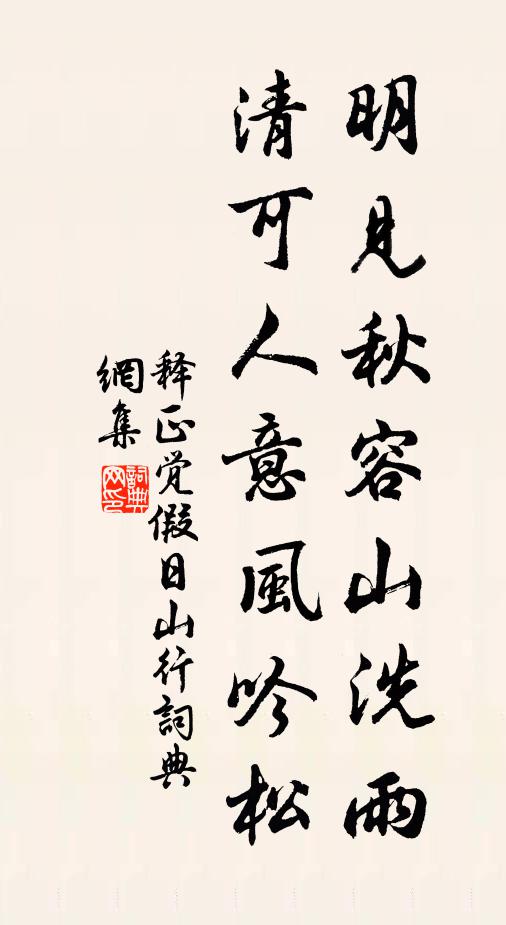 明見秋容山洗雨
清可人意風吟松
释正觉假日山行詞典
網集
詞典
网印